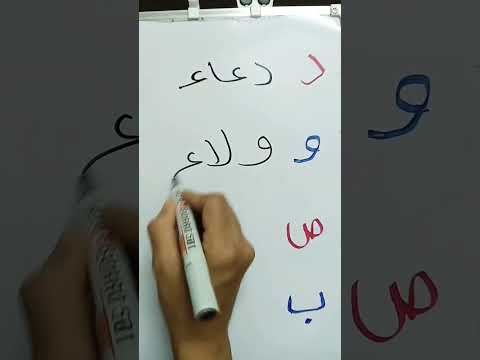 د دعاء
و ولاء
ص
ب